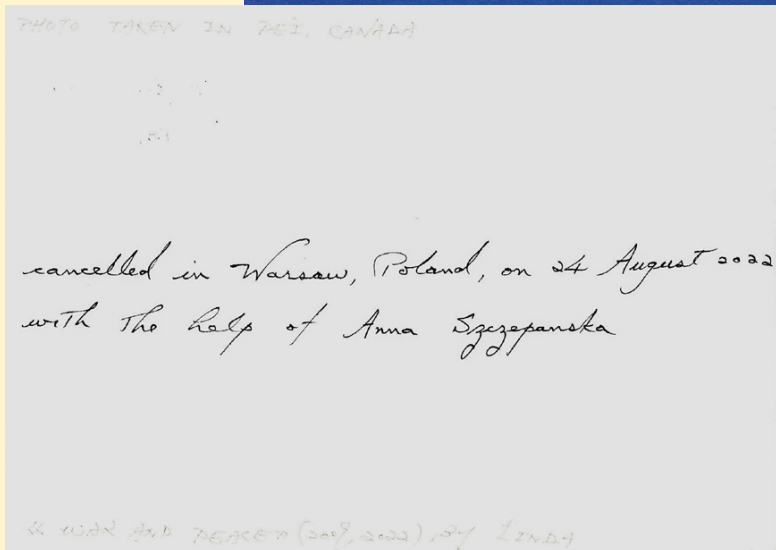 PHOTO TAKEN IN PEI, CANADA
cancelled in Warsaw, Poland, on 24 August 2022
with the help of Anna Szczepanska
« WAR AND PEACE » (2009, 2022), BY LINDA